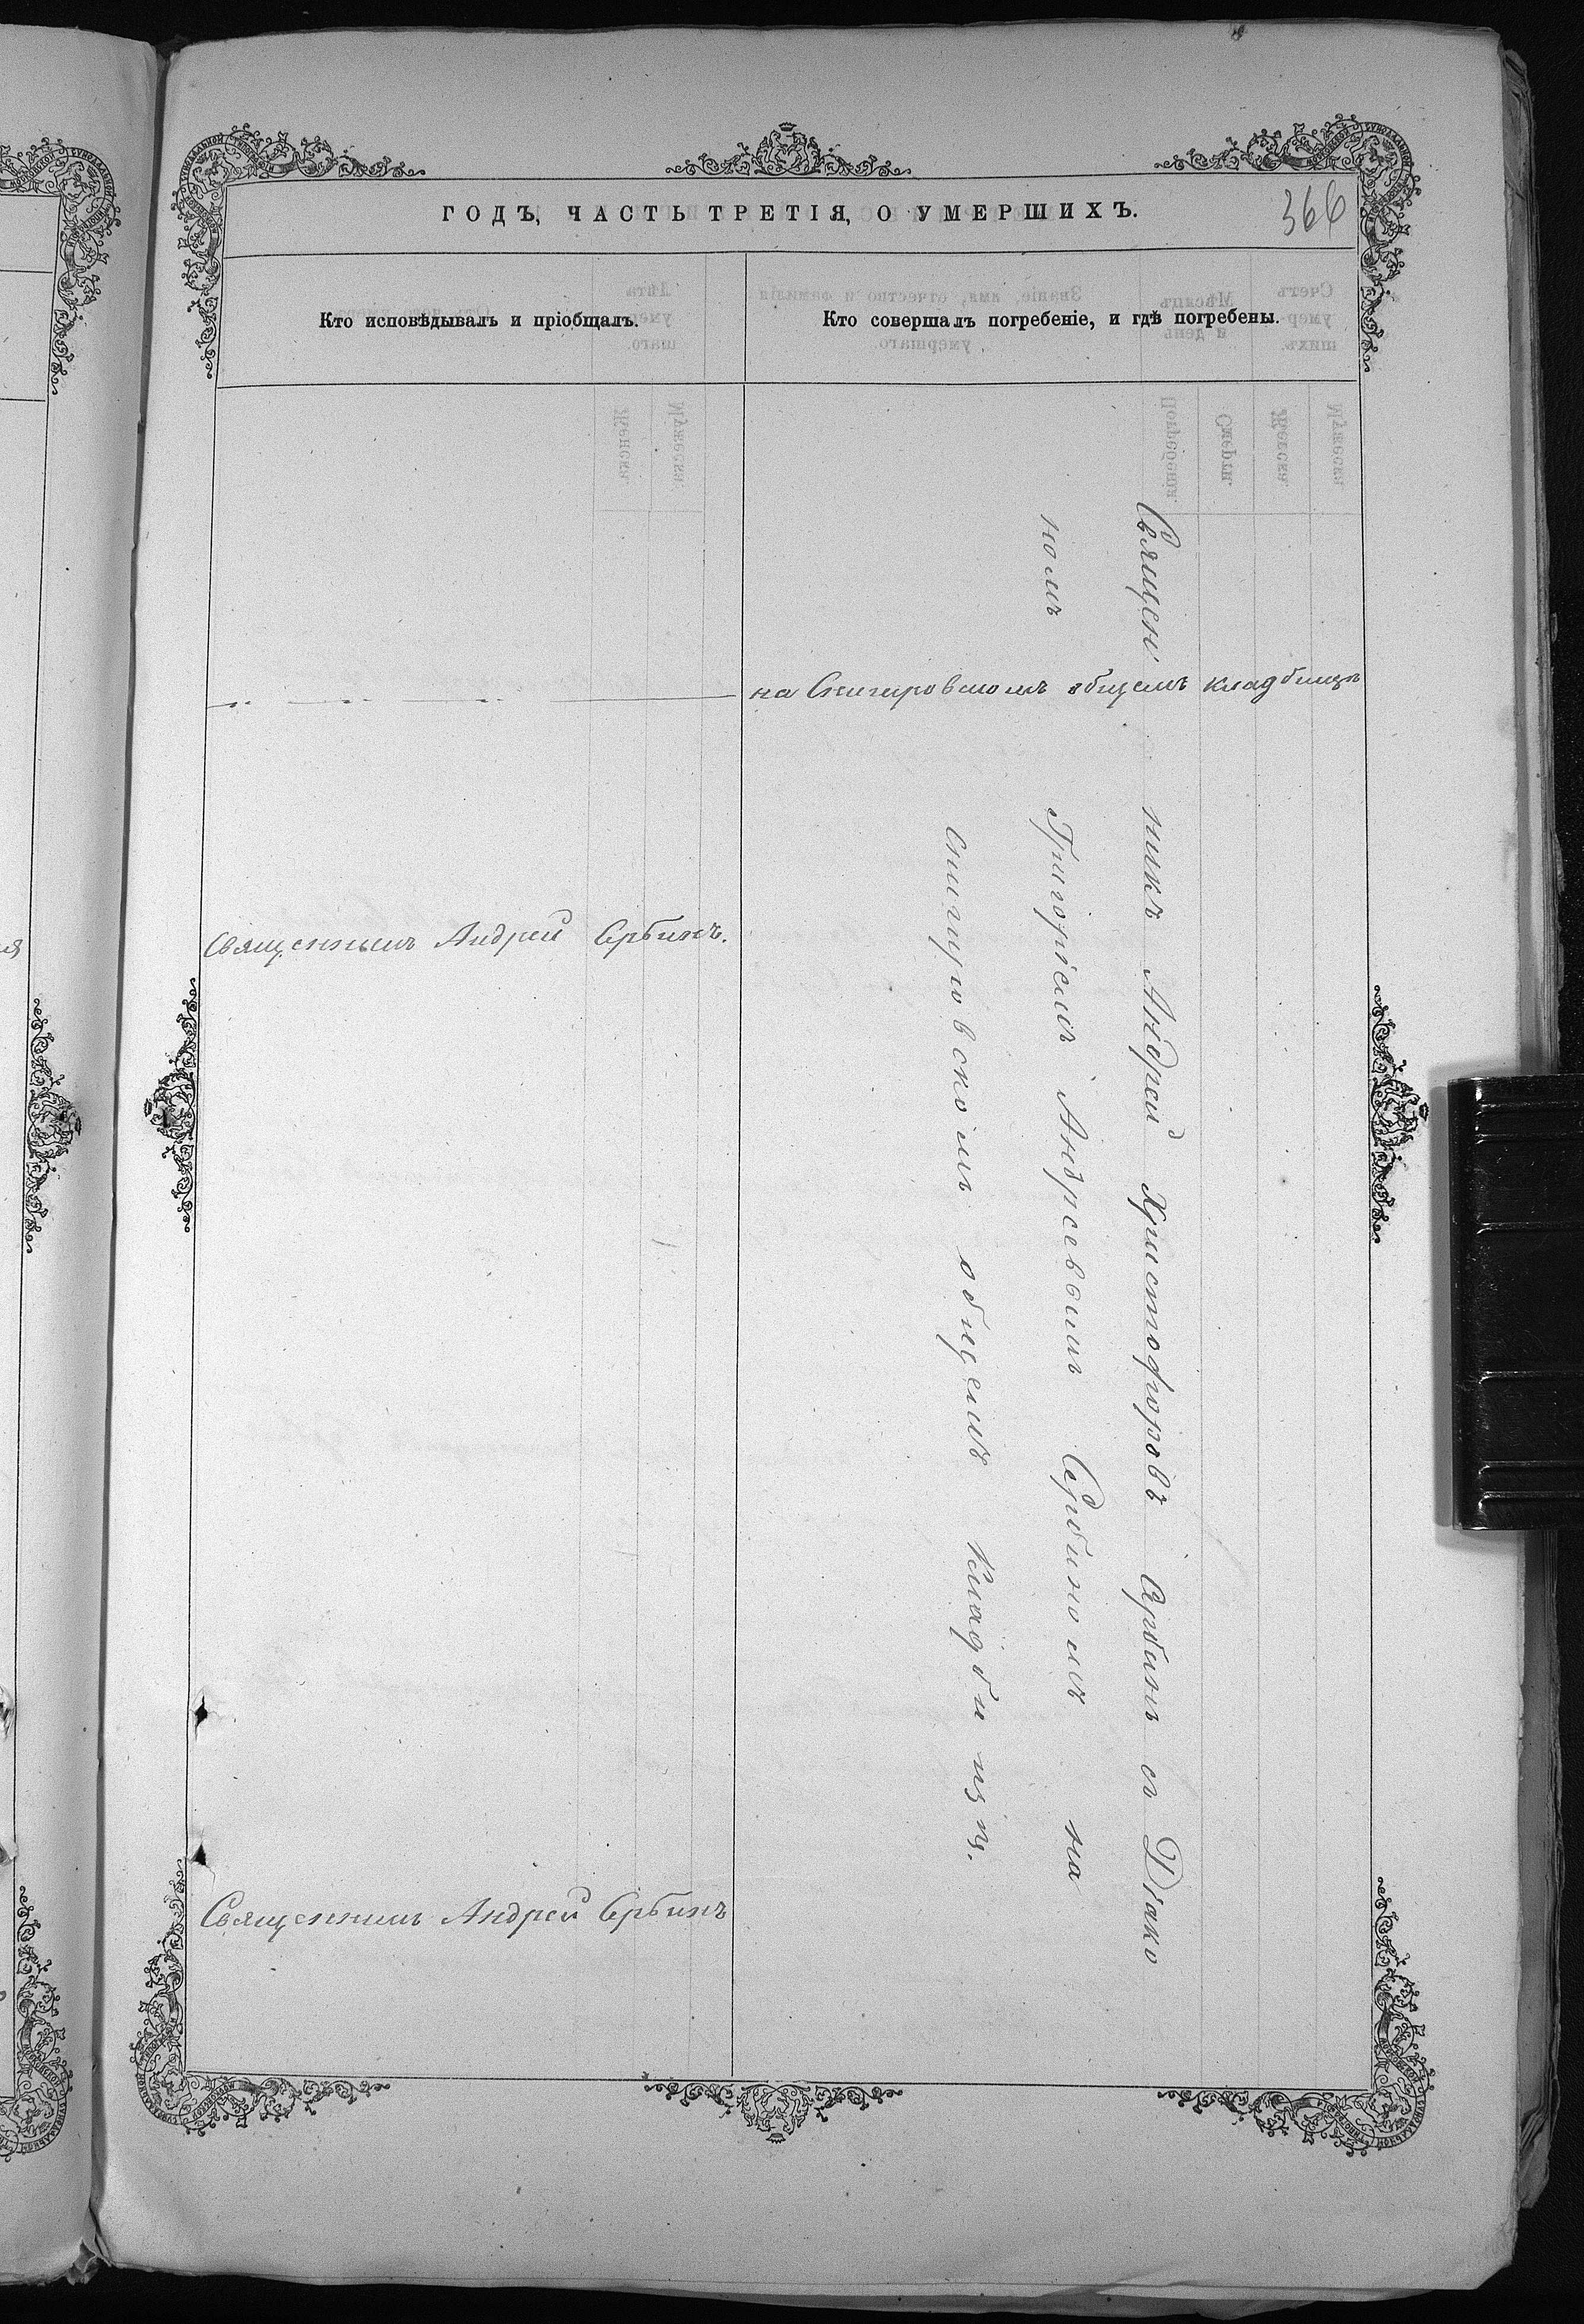 ГОДЪ, ЧАСТЬ ТРЕТІЯ, О УМЕРШИХЪ.
366
Кто исповѣдывалъ и пріобщалъ.
Кто совершалъ погребеніе, и гдѣ погребены.
на Снигировскомъ общемъ кладбищѣ
Священникъ Андрей Сербинъ.
Священникъ Андрей Христофоровъ Сербинъ съ Діако
номъ Григоріемъ Андреевымъ Сербиномъ на
Снигировскомъ общемъ кладбищѣ.
Священникъ Андрей Сербинъ